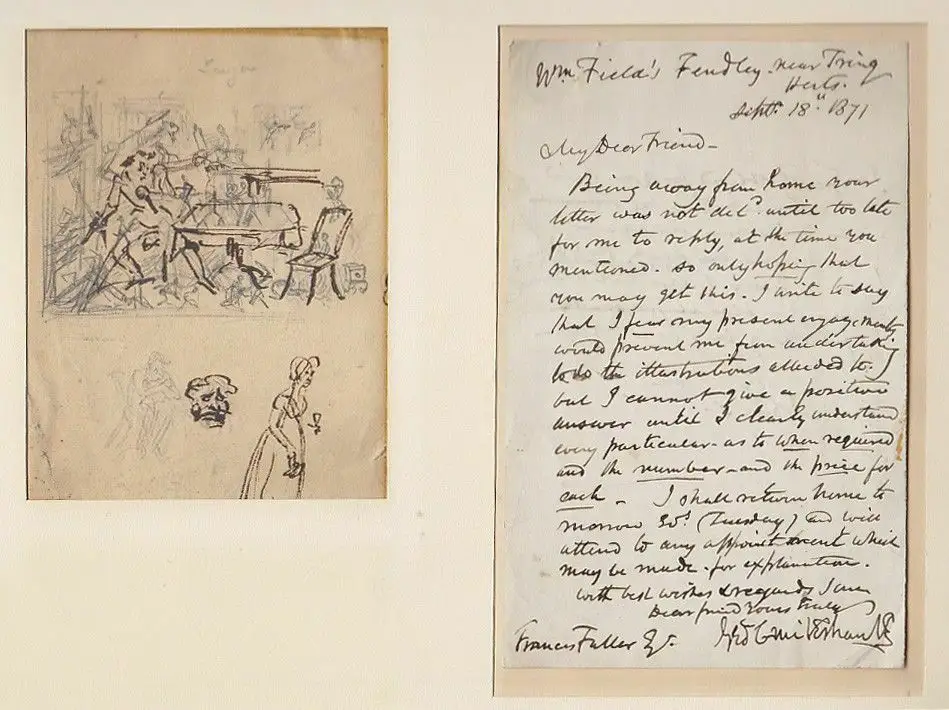 Wm Field's Fendley near Tring
Herts.
Septr 18th 1871
My Dear Friend –
Being away from home your
letter was not deld. until too late
for me to reply, at the time you
mentioned. so only hoping that
you may get this. I write to say
that I fear my present engagements
would prevent me from undertaking
to do the illustrations alluded to.
but I cannot give a positive
answer until I clearly understand
every particular – as to when required
and the number – and the price for
each – I shall return home to
morrow (Tuesday) and will
attend to any appointment which
may be made for explanation.
with best wishes & regards I am
Dear friend Yours truly
Geo Cruikshank
Francis Fuller Esqr.